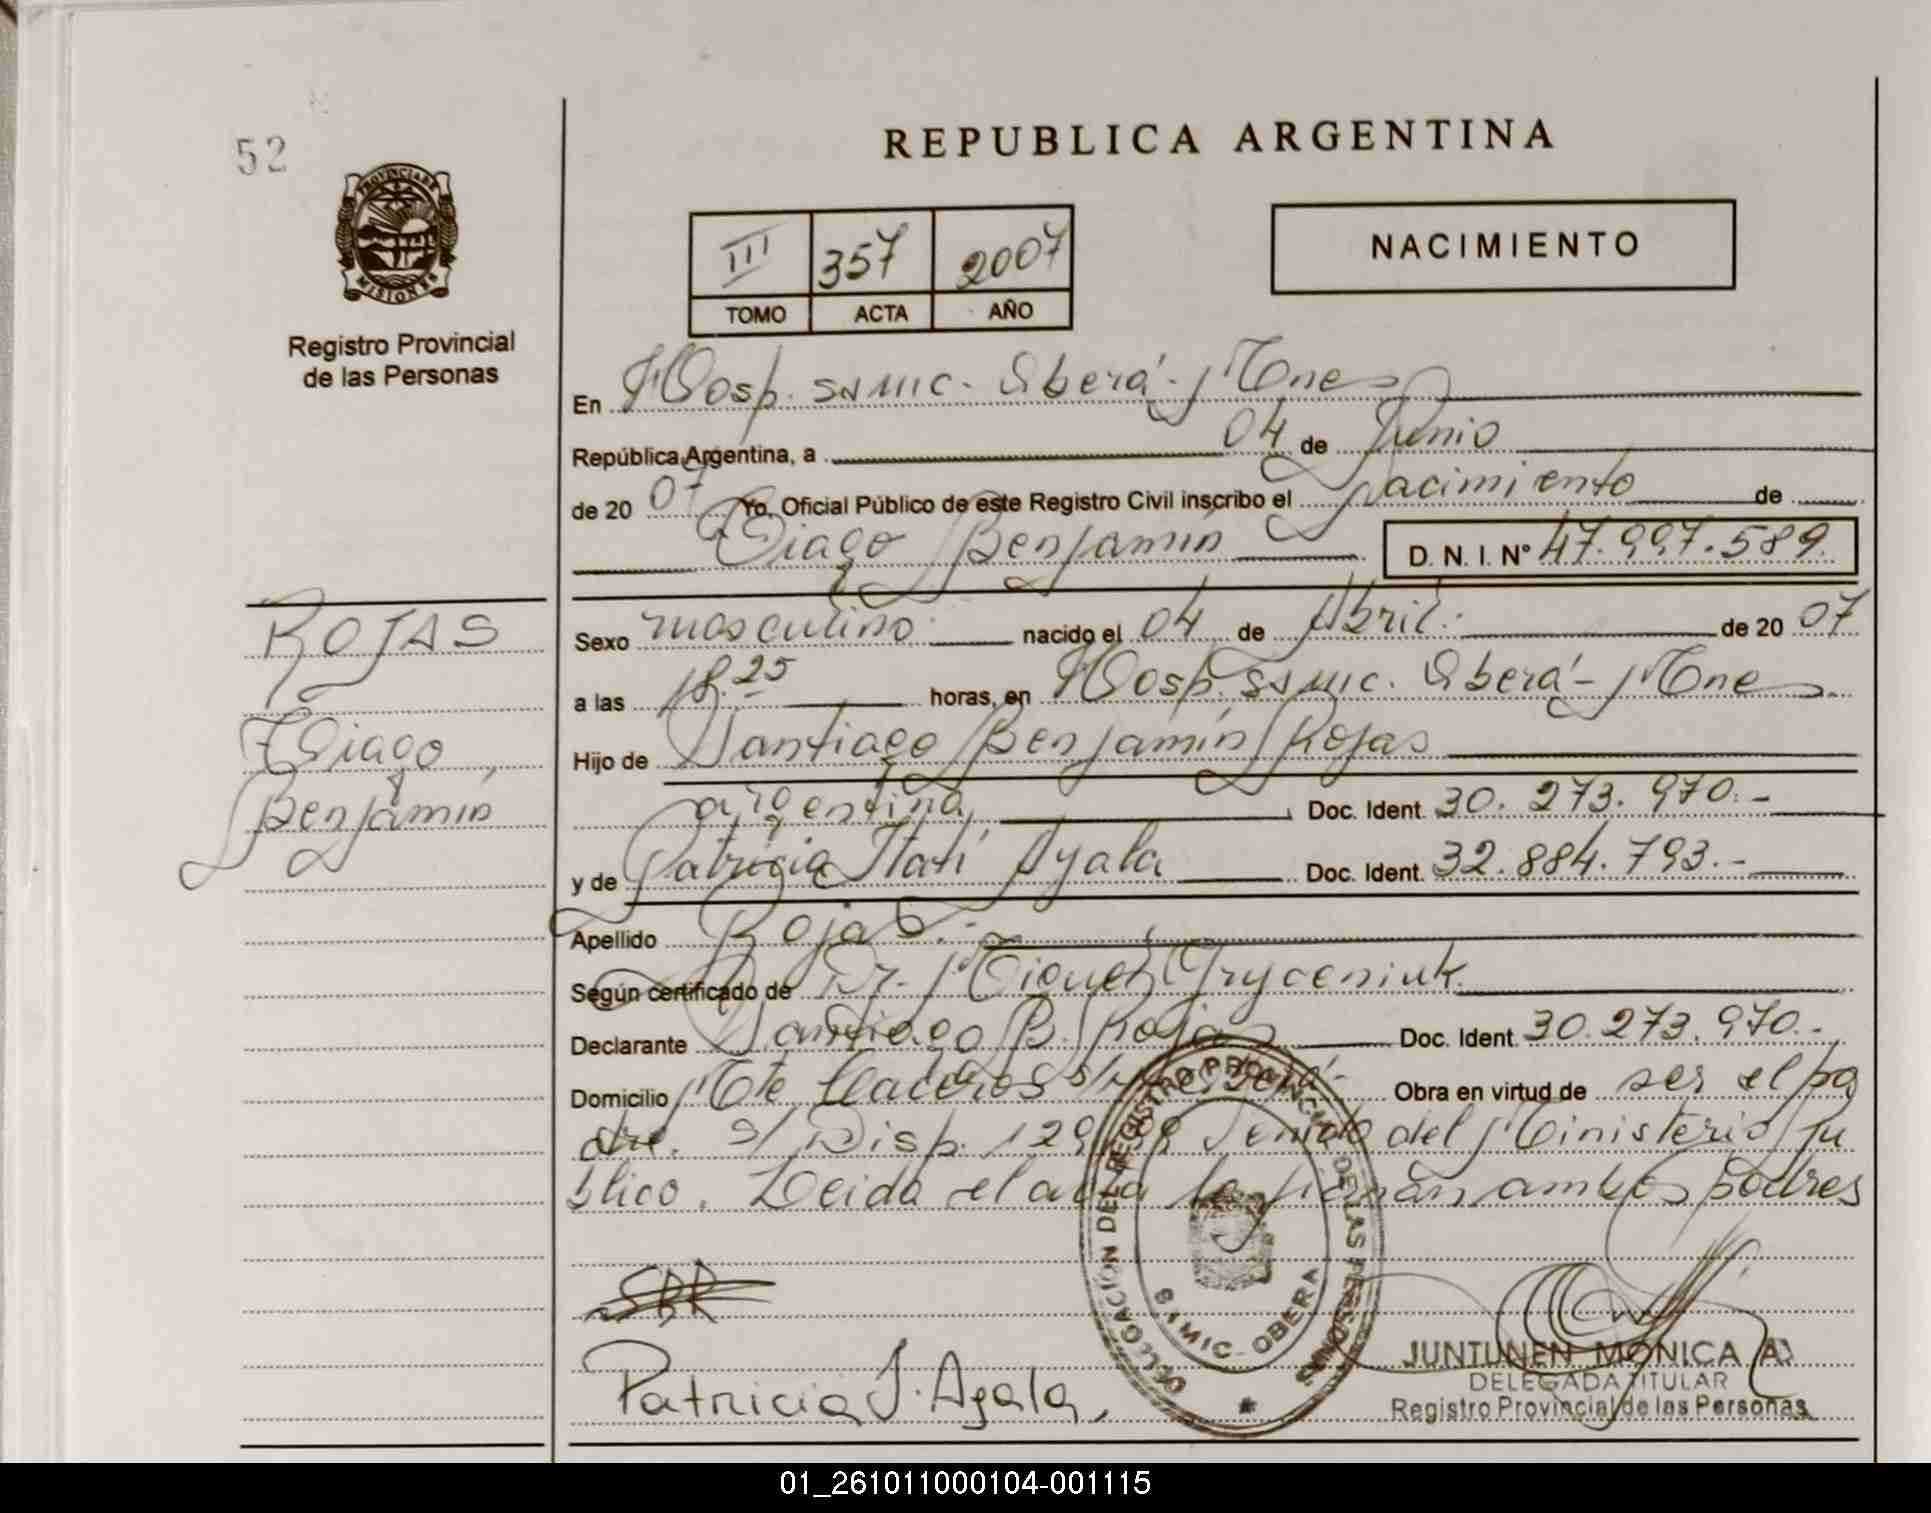 52
REPUBLICA ARGENTINA
PROVINCIA DE
MISIONES
III 357 2007
TOMO ACTA AÑO
NACIMIENTO
Registro Provincial
de las Personas
En Hosp. SAMIC. Oberá - Mnes
República Argentina, a 04 de Junio
de 20 07 Yo, Oficial Público de este Registro Civil inscribo el Nacimiento de
Tiago Benjamín D. N. I. N° 47.997.589.
ROJAS
Tiago
Benjamín
Sexo masculino nacido el 04 de Abril. de 20 07
a las 18.25 horas, en Hosp. SAMIC. Oberá - Mnes.
Hijo de Santiago Benjamín Rojas
argentina, Doc. Ident. 30.273.970.-
y de Patricia Itatí Ayala Doc. Ident. 32.884.793.-
Apellido Rojas.-
Según certificado de Dr. Miguel Gryceniuk.
Declarante Santiago B. Rojas Doc. Ident. 30.273.970.-
Domicilio Mte Caseros s/n Oberá- Obra en virtud de ser el pa
dre. s/ Disp. 129/98 del Ministerio Pu
blico. Leida el acta la firman ambos padres
SBR
Patricia I. Ayala,
DELEGACION DEL REGISTRO PROVINCIAL DE LAS PERSONAS
SAMIC - OBERA
JUNTUNEN MONICA A.
DELEGADA TITULAR
Registro Provincial de las Personas
01_261011000104-001115